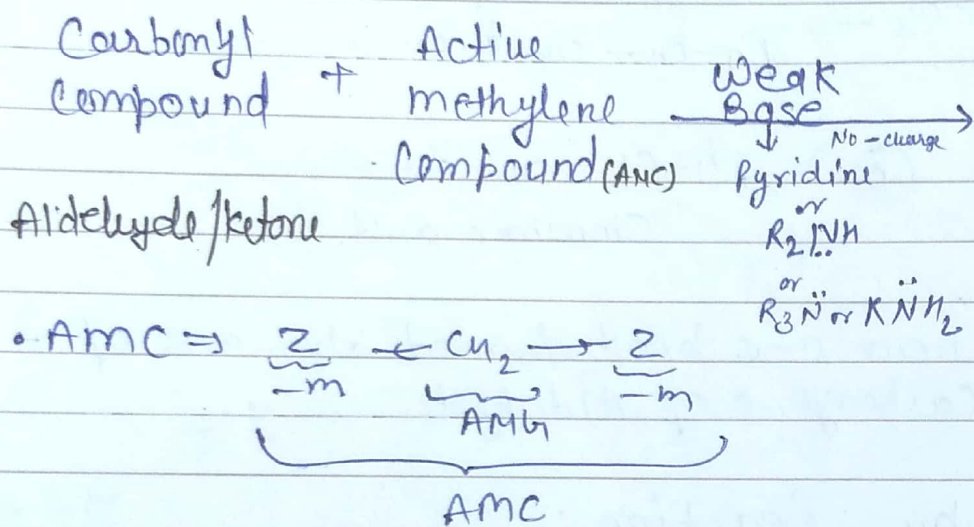 Carbonyl Compound + Active Methylene Compound (AMC) Weak Base →
No-charge
↓
Pyridine
or
R₂N̈H
or
R₃N̈ or RN̈H₂
Aldehyde/ketone
• AMC ⇒ Z ← CH₂ → Z
-m -m
AMG
AMC